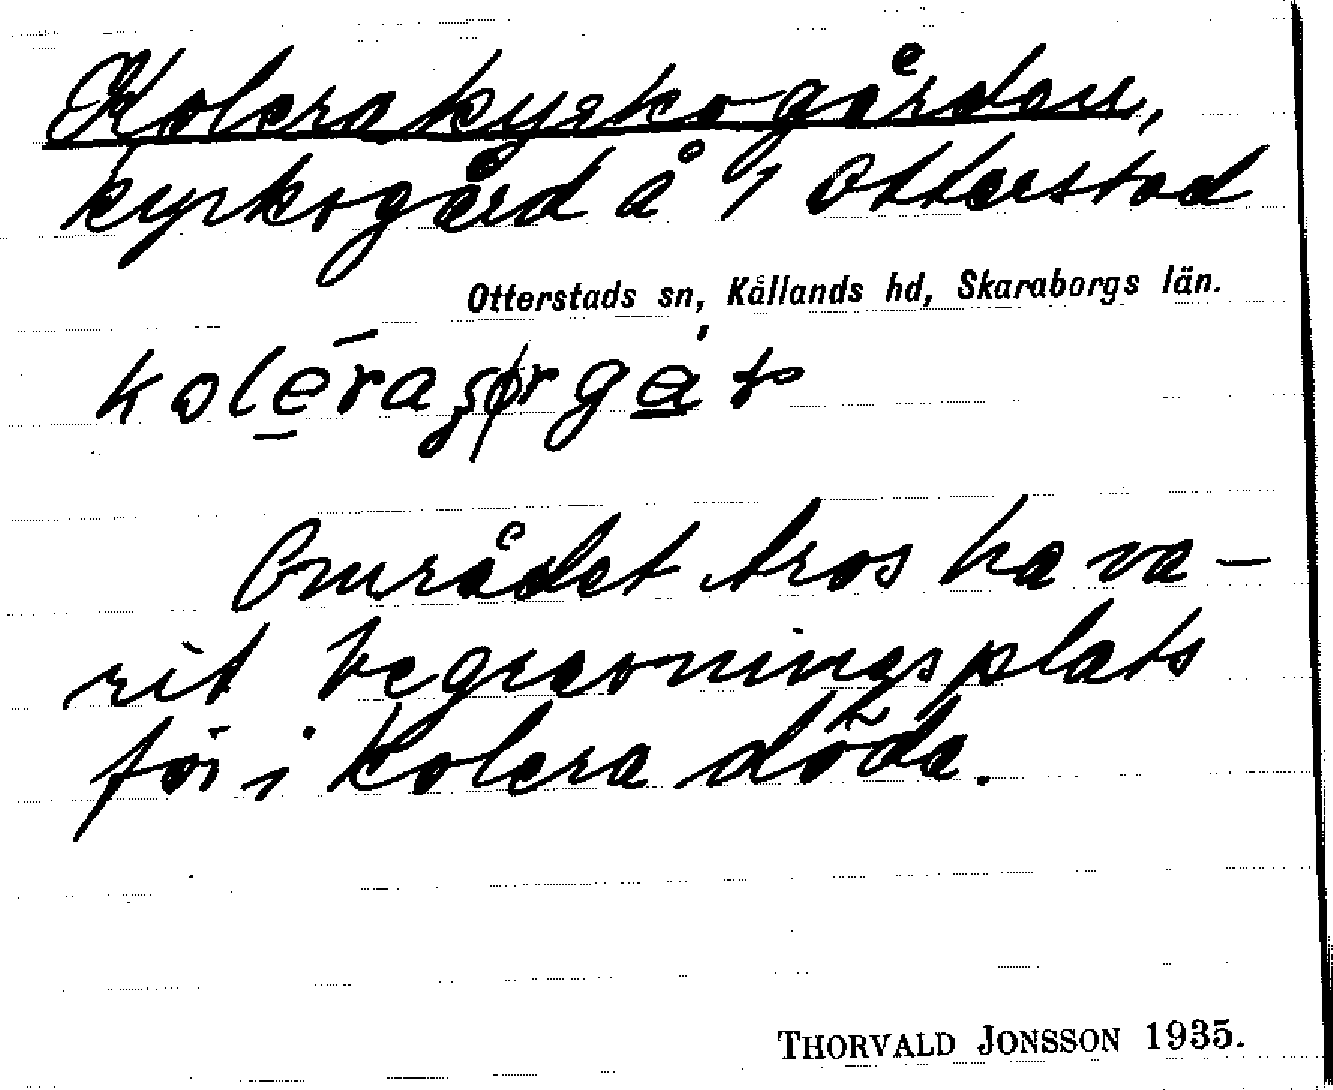 Kolerakyrkogården,
kyrkogård å 1 Otterstad
Otterstads sn, Kållands hd, Skaraborgs län.
Området tros ha va-
rit begravningsplats
för i kolera döda.
THORVALD JONSSON 1935.